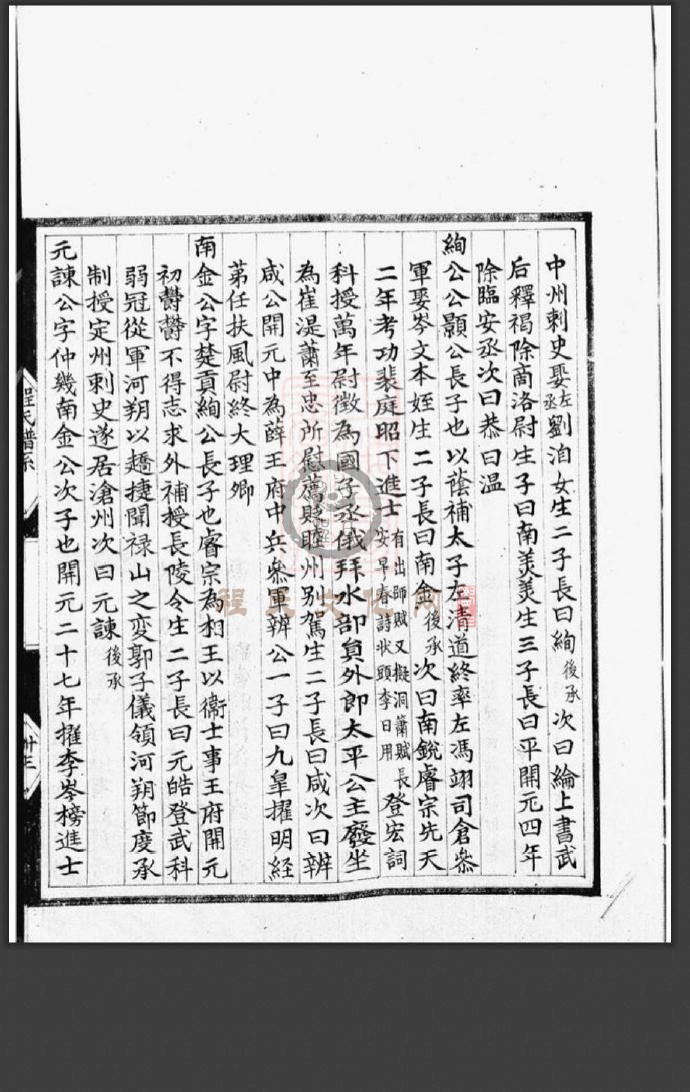 中州刺史娶左丞劉洎女生二子長曰絢後承次曰綸上書武
后釋褐除商洛尉生子曰南羙羙生三子長曰平開元四年
除臨安丞次曰恭曰温
絢公公顥公長子也以蔭補太子左清道終率左馮翊司倉叅
軍娶岑文本姪生二子長曰南金後承次曰南鋭睿宗先天
二年考功裴庭昭下進士有出師賦又擬洞簫賦長安早春詩狀頭李日用登宏詞
科授萬年尉徴為國子丞俄拜水部貟外郎太平公主廢坐
為崔湜蕭至忠所慰薦貶瞻州别駕生二子長曰咸次曰辨
咸公開元中為薛王府中兵叅軍辨公一子曰九臯擢明經
苐任扶風尉終大理卿
南金公字楚貢絢公長子也睿宗為相王以衞士事王府開元
初欝欝不得志求外補授長陵令生二子長曰元皓登武科
弱冠從軍河朔以趫捷聞禄山之変郭子儀領河朔節度承
制授定州刺史遂居滄州次曰元諫後承
元諫公字仲幾南金公次子也開元二十七年擢李岑榜進士
程氏譜系
卅三
程氏文化网